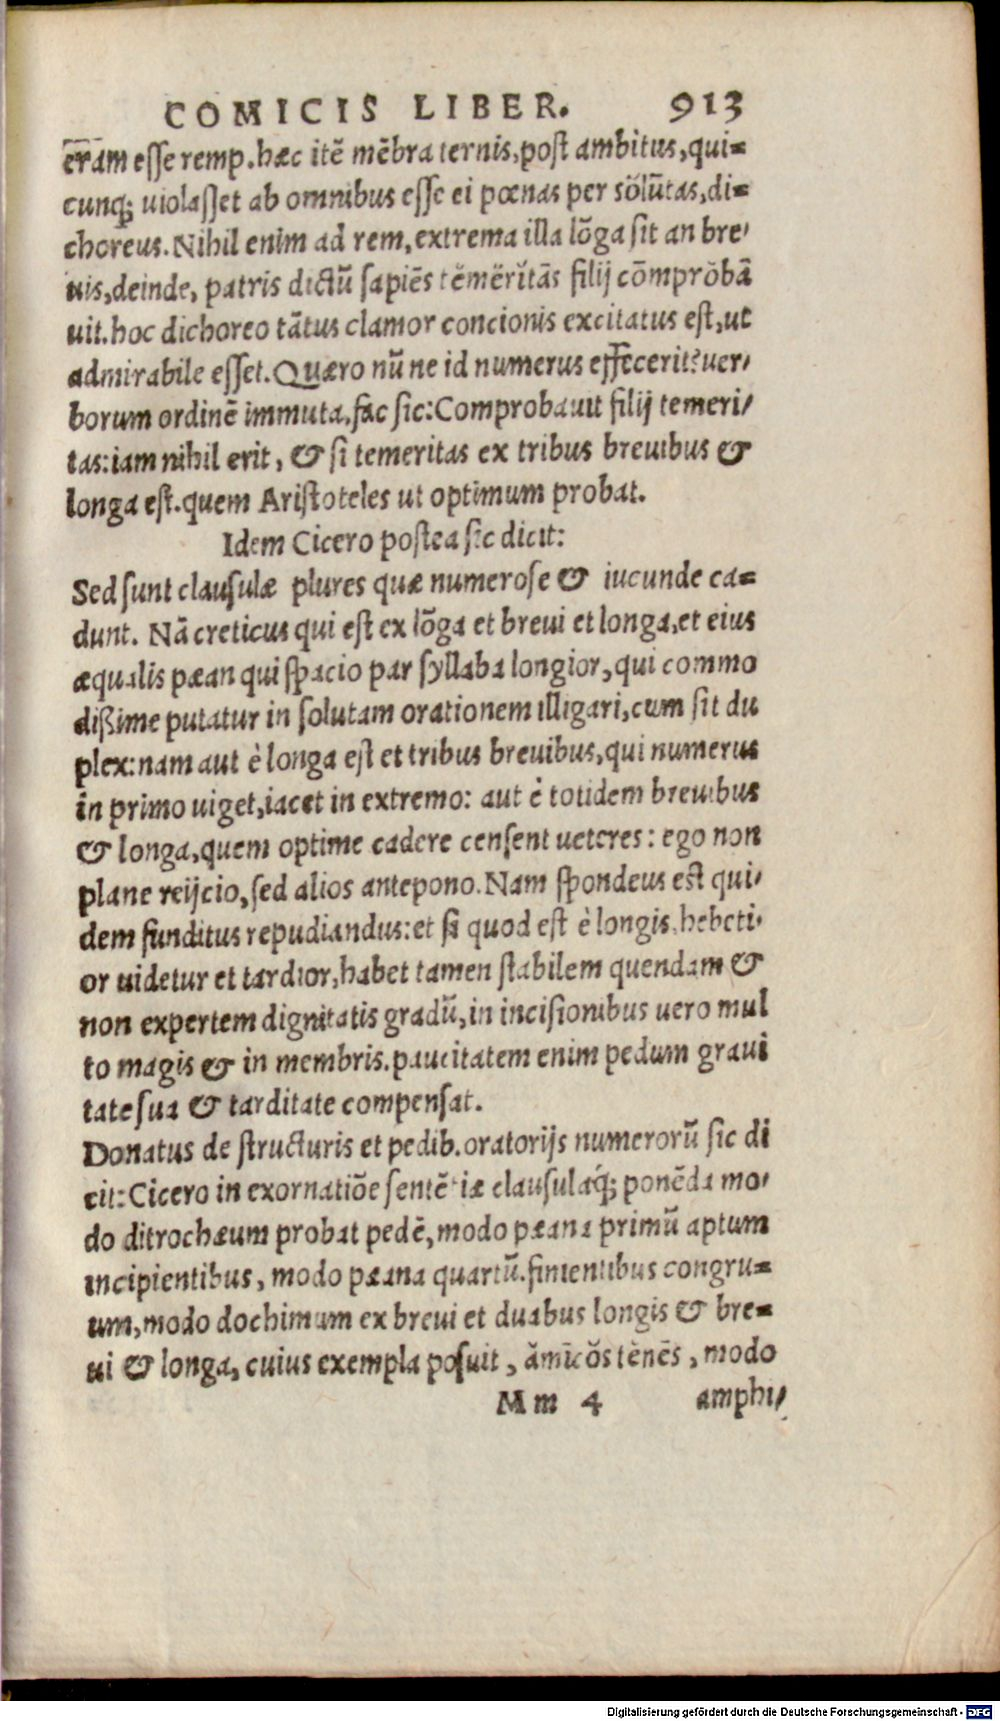 COMICIS LIBER. 913
eram esse remp. hæc itē mēbra ternis, post ambitus, qui=
cunq; uiolasset ab omnibus esse ei pœnas per sŏlūtas, di=
choreus. Nihil enim ad rem, extrema illa lōga sit an bre-
uis, deinde, patris dictū sapiēs tĕmĕrĭtās filij cōmprŏbā
uit. hoc dichoreo tātus clamor concionis excitatus est, ut
admirabile esset. Quæro nū ne id numerus effecerit? uer-
borum ordinē immuta, fac sic: Comprobauit filij temeri-
tas: iam nihil erit, & si temeritas ex tribus breuibus &
longa est. quem Aristoteles ut optimum probat.
Idem Cicero postea sic dicit:
Sed sunt clausulæ plures quæ numerose & iucunde ca=
dunt. Nā creticus qui est ex lōga et breui et longa, et eius
æqualis pæan qui spacio par syllaba longior, qui commo
dißime putatur in solutam orationem illigari, cum sit du
plex: nam aut è longa est et tribus breuibus, qui numerus
in primo uiget, iacet in extremo: aut è totidem breuibus
& longa, quem optime cadere censent ueteres: ego non
plane reijcio, sed alios antepono. Nam spondeus est qui-
dem funditus repudiandus: et si quod est è longis, hebeti-
or uidetur et tardior, habet tamen stabilem quendam &
non expertem dignitatis gradū, in incisionibus uero mul
to magis & in membris. paucitatem enim pedum graui
tate sua & tarditate compensat.
Donatus de structuris et pedib. oratorijs numerorū sic di
cit: Cicero in exornatiōe sentētiæ clausulaq́; ponēda mo-
do ditrochæum probat pedē, modo pæana primū aptum
incipientibus, modo pæana quartū. finientibus congru=
um, modo dochimum ex breui et duabus longis & bre=
ui & longa, cuius exempla posuit, ămīcŏs tĕnēs, modo
Mm 4 amphi-
Digitalisierung gefördert durch die Deutsche Forschungsgemeinschaft - DFG